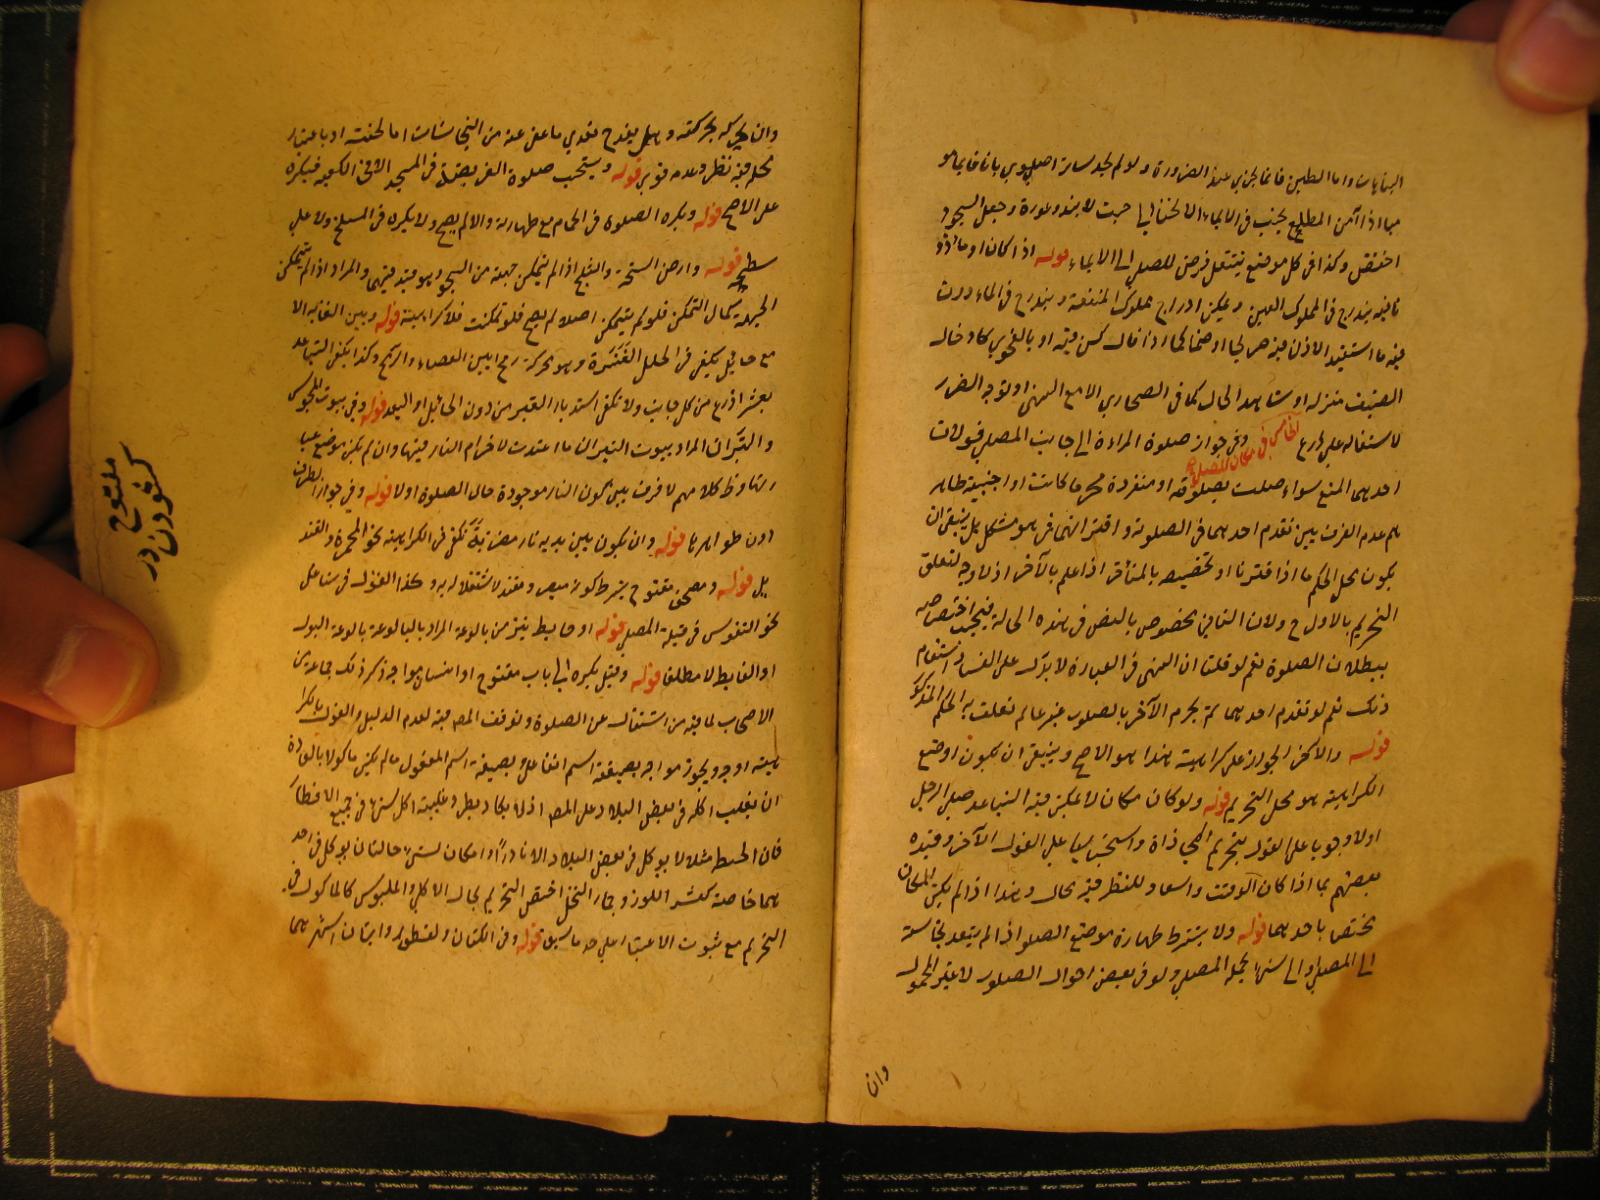 النباتات واما الطين فانما يجزي عند الضرورة ولو لم يجد ساترا اصلا يومي بانا قائما هو
اذا أمن المطلع يجب في الايماء الانحناء الى حيث لا يبدو عورة وجعل السجود
اخفض وكذا في كل موضع ينتقل فرض المصلي الى الايماء قوله اذا كان او مأذونا
فيه يندرج في المملوك العين ويمكن ادراج مملوك المنفعة ويندرج في المأذون
فيه ما استفيد الاذن فيه صريحا او ضمنا كما اذا قال كن فيه او بالفحوى كادخال
الضيف منزله او شاهد الحال كما في الصحاري الا مع النهي او توجه الضرر
لاشتماله على زرع الخامس في مكان المصلي وفي جواز صلوة المرأة الى جانب المصلي قولان
احدهما المنع سواء صلت بصلوته او منفردة محرما كانت او اجنبية ظاهر
هم عدم الفرق بين تقدم احدهما في الصلوة واقترانهما في هو مشكل بل ينبغي ان
يكون محل الحكم ما اذا اقترنا او تخصيصه بالمتأخر اذا علم بالآخر اذ لا وجه لتعلق
التحريم بالاول ح ولان الثاني مخصوص بالنص في هذه الحالة فيجب اختصاصه
ببطلان الصلوة نعم لو قلنا ان النهي في العبادة لا يدل على الفساد استقام
ذلك نعم لو تقدم احدهما لم يحرم الآخر بالصلوة غير عالم تعلق به الحكم المذكور
قوله والاخر الجواز على كراهية هذا هو الاصح وينبغي ان يكون اوضع
الكراهية هو محل التحريم قوله ولو كان مكان لا يمكن فيه التباعد صلى الرجل
اولا وجوبا على القول بتحريم المحاذاة واستحبابا على القول الآخر وقيده
بعضهم بما اذا كان الوقت واسعا وللنظر فيه مجال وهذا اذا لم يكن المكان
يختص باحدهما قوله ولا يشترط طهارة موضع الصلوة اذا لم يتعد نجاسته
الى المصلي او الى شيء يحمله المصلي ولو في بعض احوال الصلوة لا غير المحمول
وان
وان تحركه بحركته وهل يقدح تعدي ما عفي عنه من النجاسات اما لخفته او باعتبار
محله فيه نظر وعدمه قوي قوله ويستحب صلوة الفريضة في المسجد الا في الكعبة فيكره
على الاصح قوله ويكره الصلوة في الحمام مع طهارته والا لم يصح ولا يكره في المسلخ ولا على
سطحه قوله وارض السبخة والثلج اذا لم يتمكن جبهته من السجود هو قيد فيهما والمراد اذا لم يتمكن
الجبهة كمال التمكن فلو لم يتمكن اصلا لم يصح فلو تمكنت فلا كراهية قوله وبين المقابر الا
مع حائل يكفي في الحائل العنزة وهو محركة رمح بين العصاء والرمح وكذا يكفي التباعد
بعشر اذرع من كل جانب ولا يكفي استدبار القبر من دون الحائل او البعد قوله وفي بيوت المجوس
والنيران المراد ببيوت النيران ما اعتدت لاضرام النار فيها وان لم يكن موضع عبا
دتها وظ كلامهم لا فرق بين كون النار موجودة حال الصلوة اولا قوله وفي جواد الطرق
دون ظواهرها قوله وان يكون بين يديه نار مضرمة يكفي في الكراهية نحو المجمرة والقند
يل قوله ومصحف مفتوح بشرط كونه مبصرا وقيد لاشتغاله به وكذا القول في شاغل
نحو النقوش في قبلة المصلي قوله او حائط ينز من بالوعة المراد بالبالوعة بالوعة البول
او الغايط لا مطلقا قوله وقيل يكره الى باب مفتوح او انسان مواجه ذكر ذلك جماعة من
الاصحاب لما فيه من اشتغال عن الصلوة وتوقف المص فيه لعدم الدليل والقول بالكرا
هية اوجه ويجوز مواجه بصيغة اسم الفاعل وبصيغة اسم المفعول ما لم يكن ماكولا بالعادة
ان يغلب اكله في بعض البلاد على المص اذ لا يكاد يطرد غلبية اكل شيء في جميع الاقطار
فان الحنطة مثلا لا يوكل في بعض البلاد الا نادرا او امكان لشيء حالتان يوكل في احد
هما خاصة كقشر اللوز وجمار النخل اختص التحريم بحال الاكل والملبوس كالماكول في
التحريم مع ثبوت الاعتبار على حد ما سبق قوله وفي الكتان والقطن روايتان اشهرهما
ملتوح
كشودن در